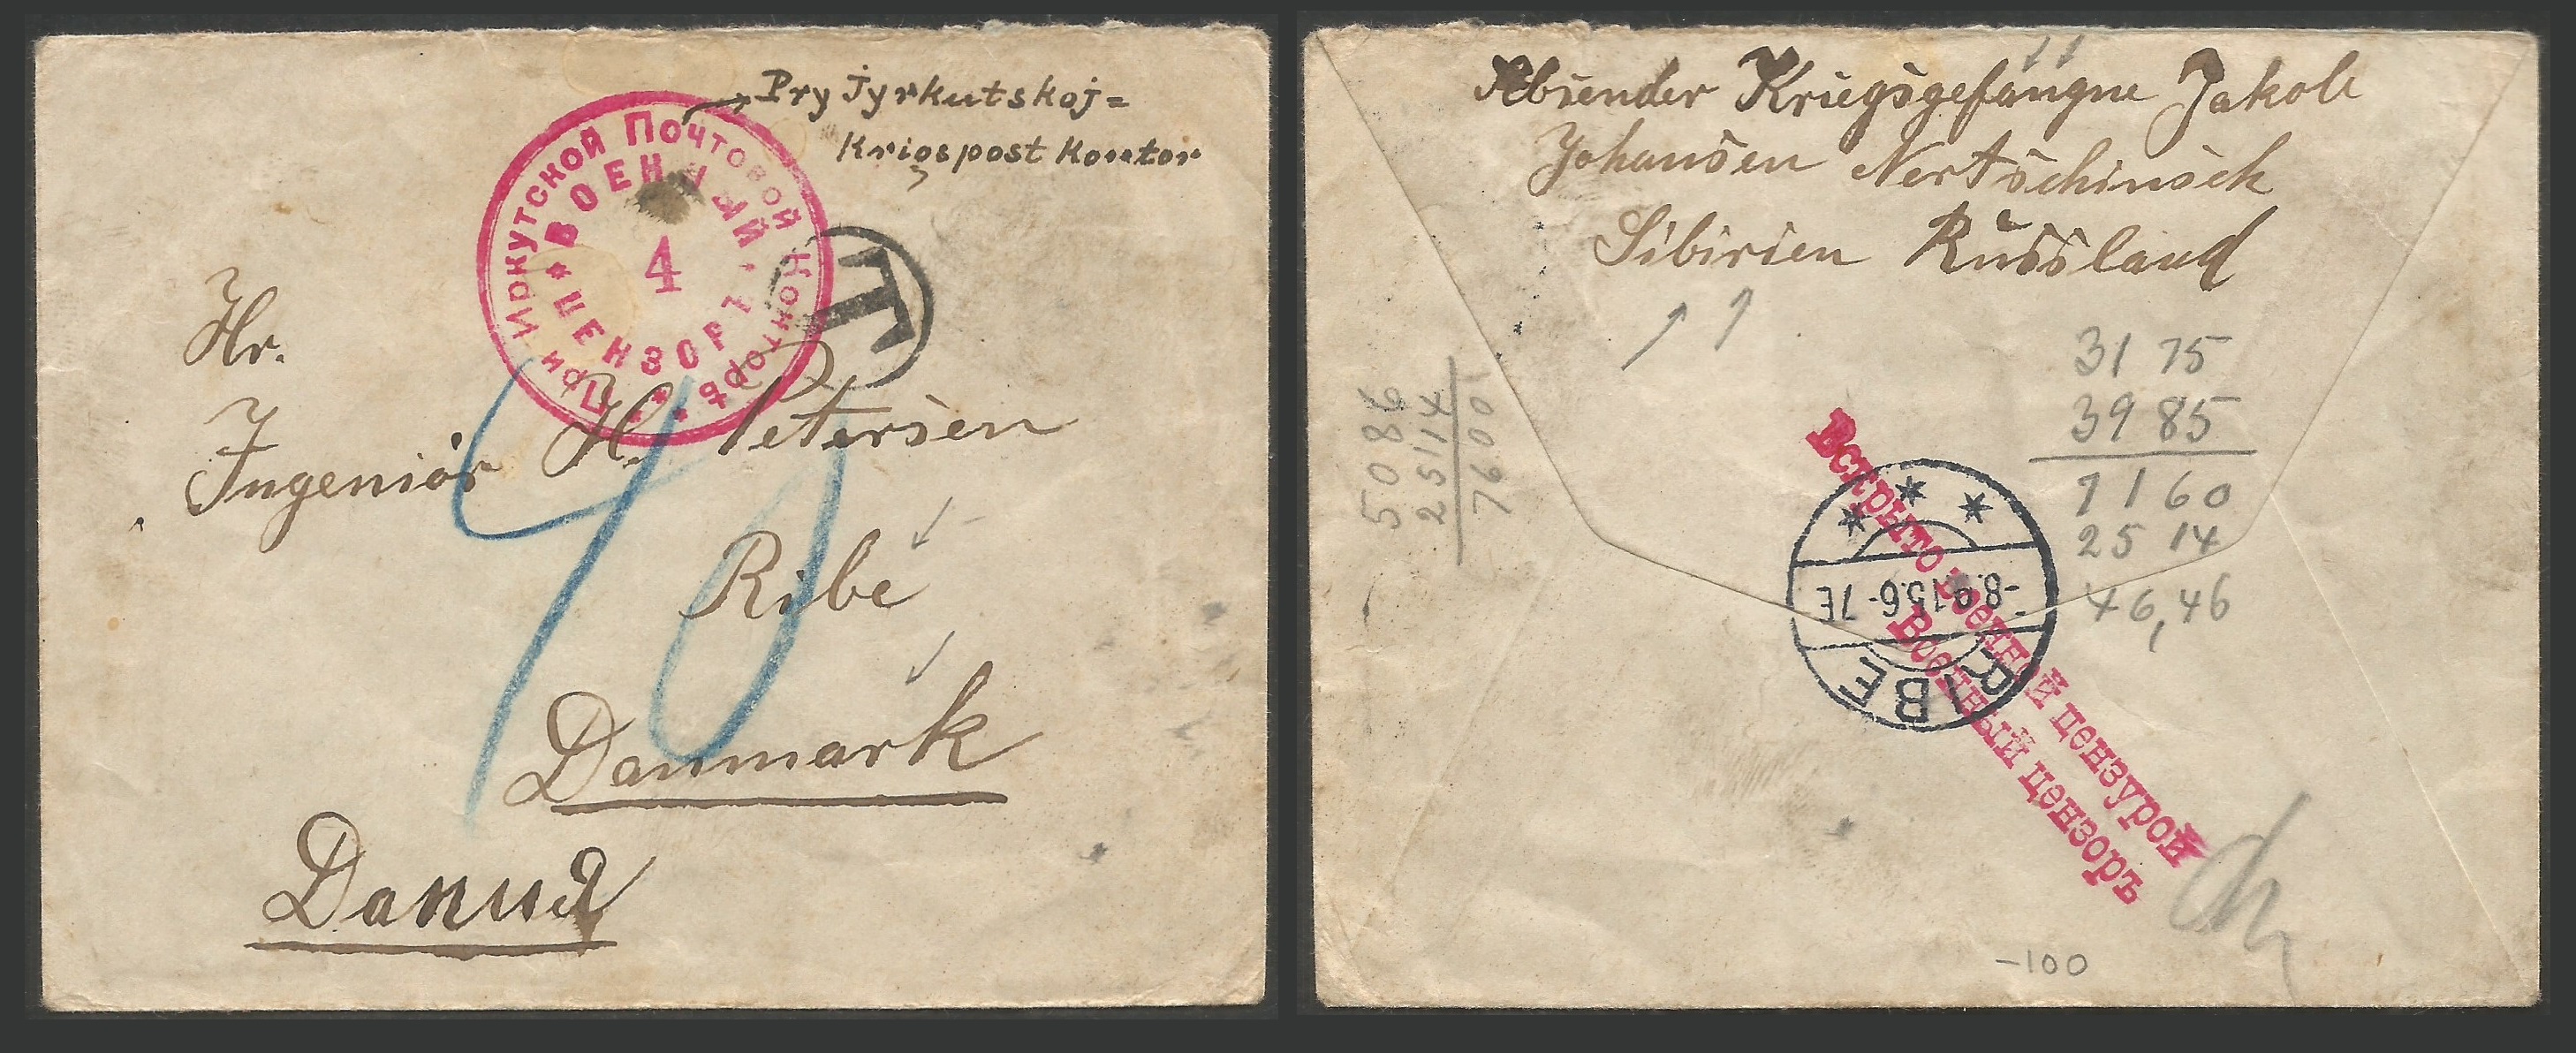 Pry jyrkutskoj=
Krigspost Kontor
При Иркутской Почтовой Конторѣ
ВОЕННЫЙ
4
ЦЕНЗОРЪ
T
Hr.
Ingeniör H. Petersen
40
Ribe
Danmark
Дания
Absender Kriegsgefangne Jakob
Johansen Nertschinsk
Sibirien Russland
31 75
39 85
71 60
25 14
46,46
50 86
25 14
76 00
Вскрыто военной цензурой
Военный цензоръ
RIBE
-8.9.15.6-7E
-100